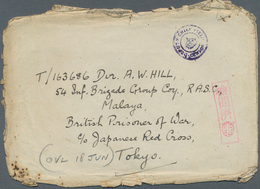 T/163686 Dvr. A.W. HILL,
54 Inf. Brigade Group Coy., R.A.S.C.,
Malaya,
British Prisoner of War,
c/o Japanese Red Cross,
(OVL 18 JUN) Tokyo.